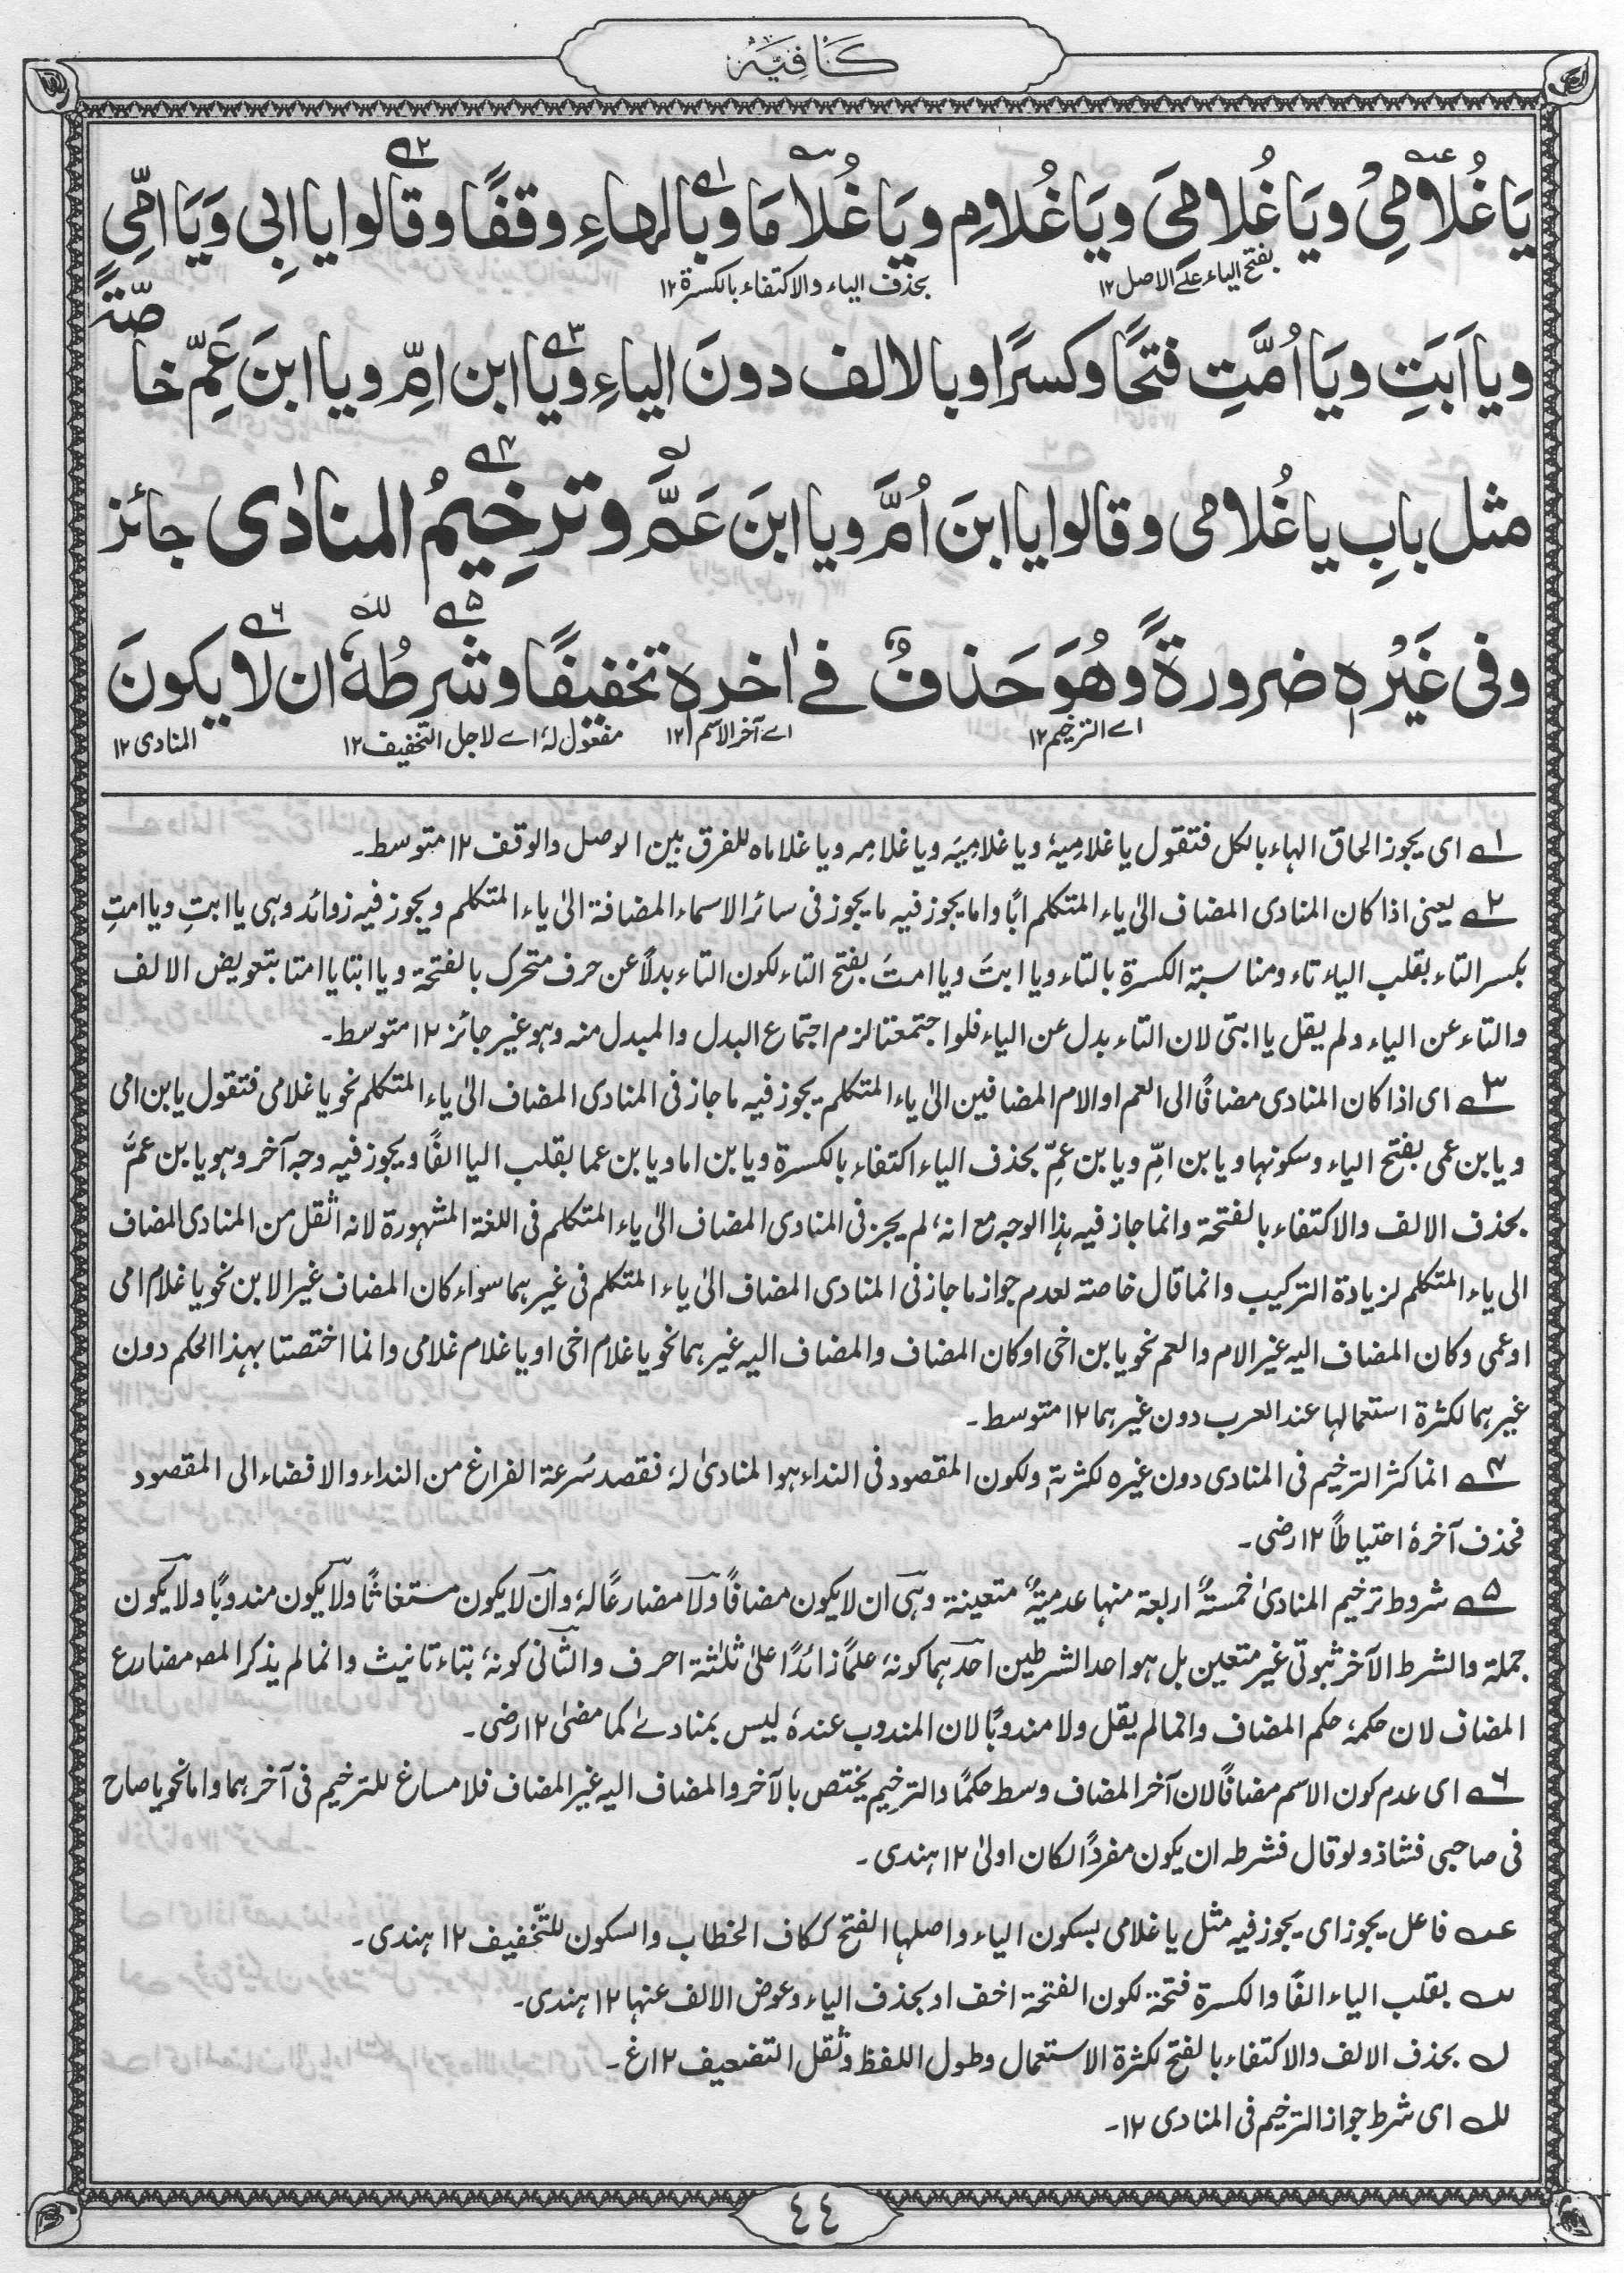 كَافِيَه
يَاغُلَامِيْ ويَاغُلامِيَ ويَاغُلامِ ويَاغُلامَا وبالهاءِ وقفًا وقالوا يا ابِي وَيَا امِّي
بفتح الياء علے الاصل ١٢
بحذف الياء والاكتفاء بالكسرة ١٢
ويا اَبَتِ ويَا اُمَّتِ فتحًا وكسرًا وبالالف دونَ الياءِ ويا ابن امِّ ويا ابنَ عَمِّ خاصّةً
مثل بابِ ياغُلامی وقالوا يا ابنَ اُمَّ ويا ابنَ عَمَّ وترخِيمُ المنادٰى جائز
وفی غَيْرِهٖ ضرورةً وهُوَ حَذفٌ فے اٰخرهٖ تخفيفًا وشرطُهٗ ان لا يكونَ
اے الترخيم ١٢
اے آخر الاسم ١٢
مفعول لهٗ اے لاجل التخفيف ١٢
المنادی ١٢
١ ای يجوز الحاق الهاء بالكل فتقول يا غلامِيَهْ ويا غلامِيَه ويا غلامِه ويا غلاماه للفرق بين الوصل والوقف ١٢ متوسط۔
٢ يعنی اذا كان المنادی المضاف الیٰ ياء المتكلم ابًا واما يجوز فيه ما يجوز فی سائر الاسماء المضافة الیٰ ياء المتكلم ويجوز فيه زوائد وهی يا ابتِ ويا امتِ
بكسر التاء بقلب الياء تاء ومناسبة الكسرة بالتاء ويا ابتَ ويا امتَ بفتح التاء لكون التاء بدلاً عن حرف متحرك بالفتحة ويا ابتا يا امتا بتعويض الالف
والتاء عن الياء ولم يقل يا ابتی لان التاء بدل عن الياء فلو اجتمعتا لزم اجتماع البدل والمبدل منه وهو غير جائز ١٢ متوسط۔
٣ ای اذا كان المنادی مضافًا الی العم او الام المضافين الیٰ ياء المتكلم يجوز فيه ما جاز فی المنادی المضاف الیٰ ياء المتكلم نحو يا غلامی فتقول يا بن امی
ويا بن عمی بفتح الياء وسكونها ويا بن امِّ ويا بن عمِّ بحذف الياء اكتفاء بالكسرة ويا بن اما ويا بن عما بقلب اليا الفًا ويجوز فيه وجه آخر وهو يا بن عمَّ
بحذف الالف والاكتفاء بالفتحة وانما جاز فيه هذا الوجه مع انهٗ لم يجز فی المنادی المضاف الیٰ ياء المتكلم فی اللغة المشهورة لانه اثقل من المنادی المضاف
الی ياء المتكلم لزيادة التركيب وانما قال خاصة لعدم جواز ما جاز فی المنادی المضاف الیٰ ياء المتكلم فی غيرهما سواء كان المضاف غير الابن نحو يا غلام امی
او عمی وكان المضاف اليه غير الام والعم نحو يا بن اخی او كان المضاف والمضاف اليه غيرهما نحو يا غلام اخی او يا غلام غلامی وانما اختصتا بهذا الحكم دون
غيرهما لكثرة استعمالها عند العرب دون غيرهما ١٢ متوسط۔
٤ انما كثر الترخيم فی المنادی دون غيره لكثرتهٖ ولكون المقصود فی النداء هو المنادیٰ لهٗ فقصد سُرعة الفراغ من النداء والافضاء الی المقصود
فحذف آخرهٗ احتياطًا ١٢ رضی۔
٥ شروط ترخيم المنادیٰ خمسةٌ اربعة منها عدميةٌ متعينة وهی ان لا يكون مضافًا ولا مضارعًا لهٗ وان لا يكون مستغاثًا ولا يكون مندوبًا ولا يكون
جملة والشرط الآخر ثبوتی غير متعين بل هو احد الشرطين احدهما كونهٗ علمًا زائدًا علیٰ ثلٰثة احرف والثانی كونهٗ بتاء تانيث وانما لم يذكر المصـ مضارع
المضاف لان حكمهٗ حكم المضاف وانما لم يقل ولا مندوبًا لان المندوب عندهٗ ليس بمنادیٰ كما مضیٰ ١٢ رضی۔
٦ ای عدم كون الاسم مضافًا لان آخر المضاف وسط حكمًا والترخيم يختص بالآخر والمضاف اليه غير المضاف فلا مساغ للترخيم فی آخرهما واما نحو يا صاح
فی صاحبی فشاذ ولو قال فشرطه ان يكون مفردًا لكان اولیٰ ١٢ هندی۔
عـه فاعل يجوز ای يجوز فيه مثل يا غلامی بسكون الياء واصلها الفتح ككاف الخطاب والسكون للتّخفيف ١٢ هندی۔
بقلب الياء الفًا والكسرة فتحة لكون الفتحة اخف او بحذف الياء وعوض الالف عنها ١٢ هندی۔
بحذف الالف والاكتفاء بالفتح لكثرة الاستعمال وطول اللفظ وثقل التضعيف ١٢ غ۔
للـه ای شرط جواز الترخيم فی المنادی ١٢۔
٤٤